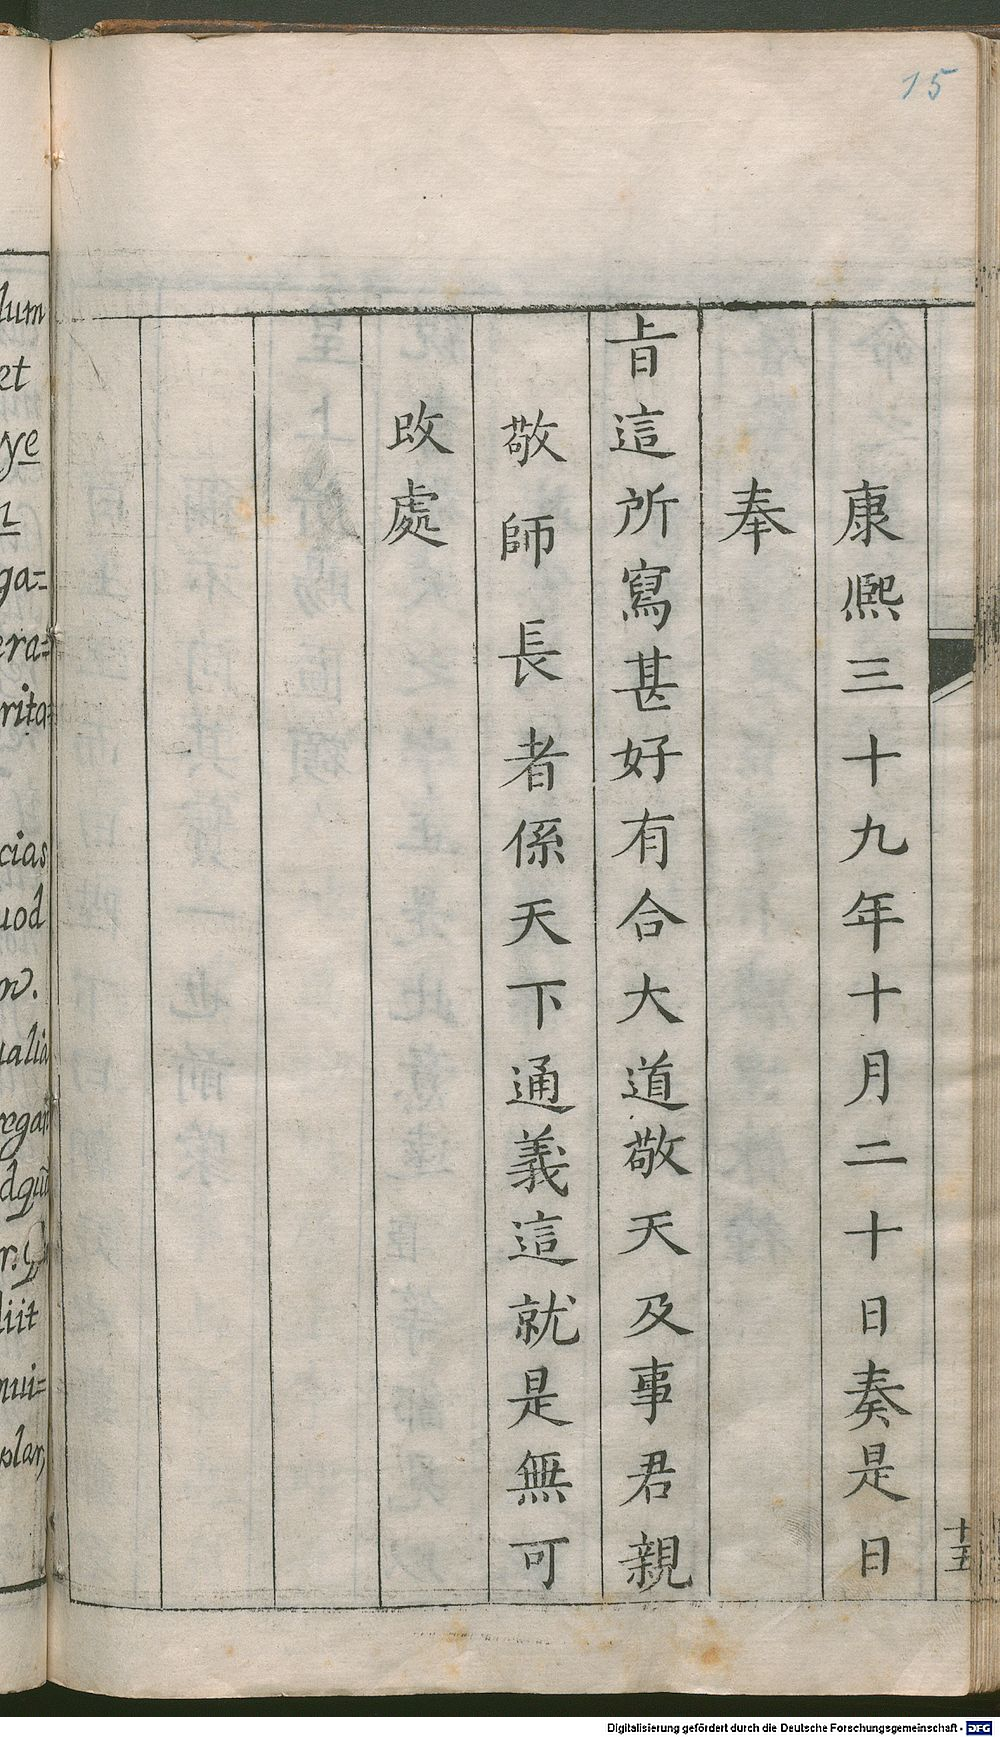 15
康熙三十九年十月二十日奏是日
奉
旨這所寫甚好有合大道敬天及事君親
敬師長者係天下通義這就是無可
改處
十五
lum
et
ye
ga=
era=
rita=
cias
uod
ualia
regar
liit
nui=
plar,
Digitalisierung gefördert durch die Deutsche Forschungsgemeinschaft - DFG